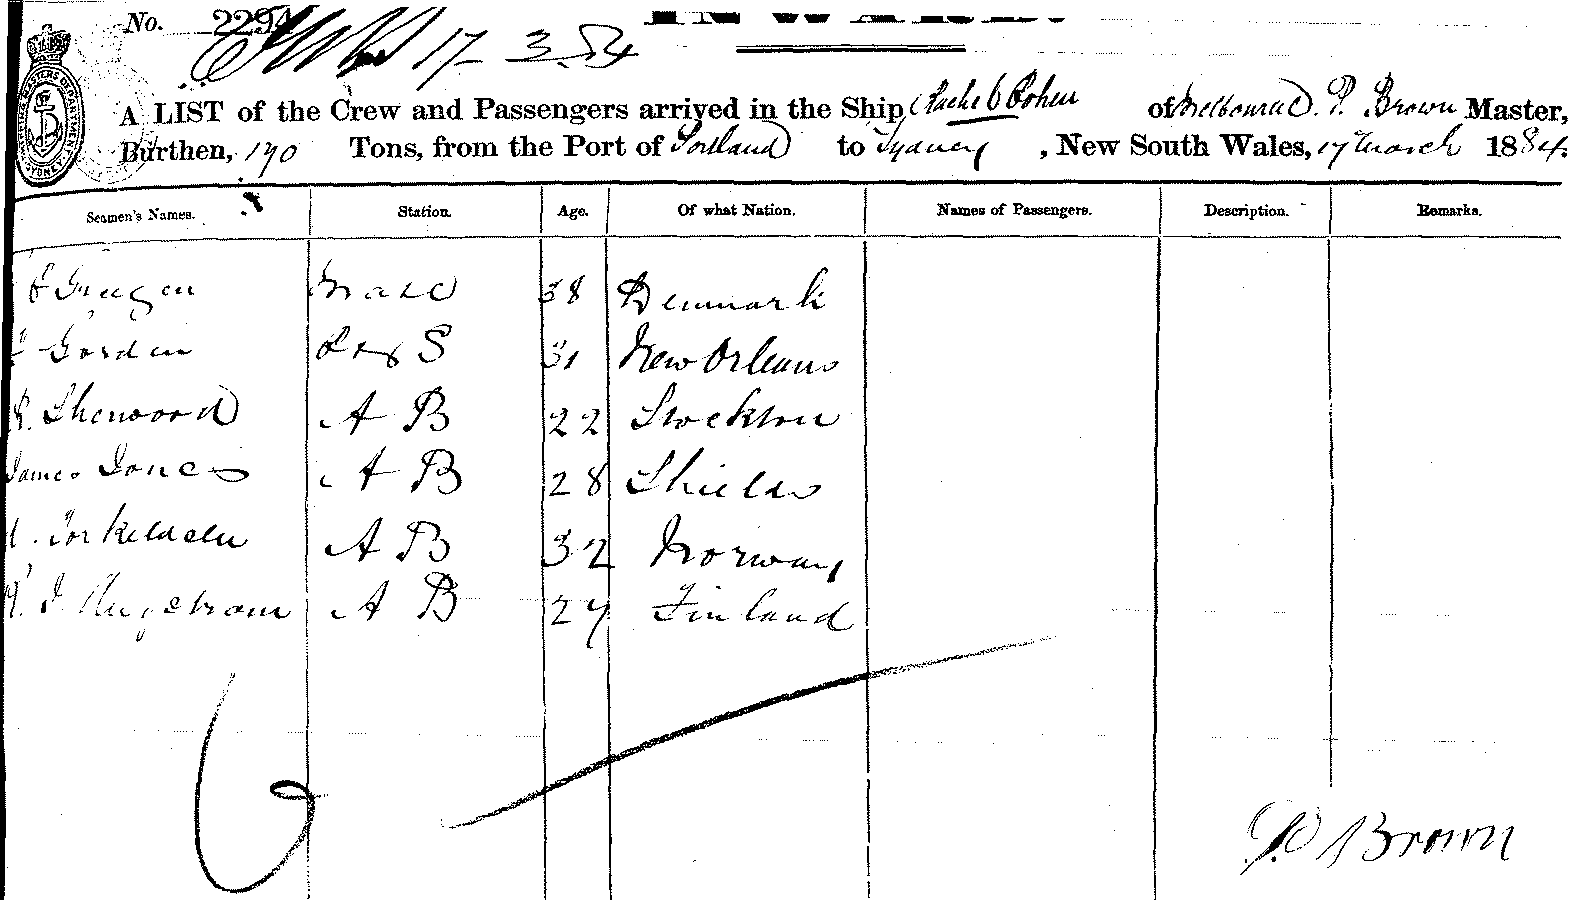 No. 2294
17 3.84
A LIST of the Crew and Passengers arrived in the Ship Rachel Cohen of Melbourne P. Brown Master,
Burthen, 190 Tons, from the Port of Portland to Sydney, New South Wales, 17 March 1884.
Seamen's Names. Station. Age. Of what Nation. Names of Passengers. Description. Remarks.
Mate 38 Denmark
Gordon S 31 New Orleans
Sherwood A B 22 Stockton
James Jones A B 28 Shields
Torkeldsen A B 32 Norway
A B 27 Finland
6
P Brown